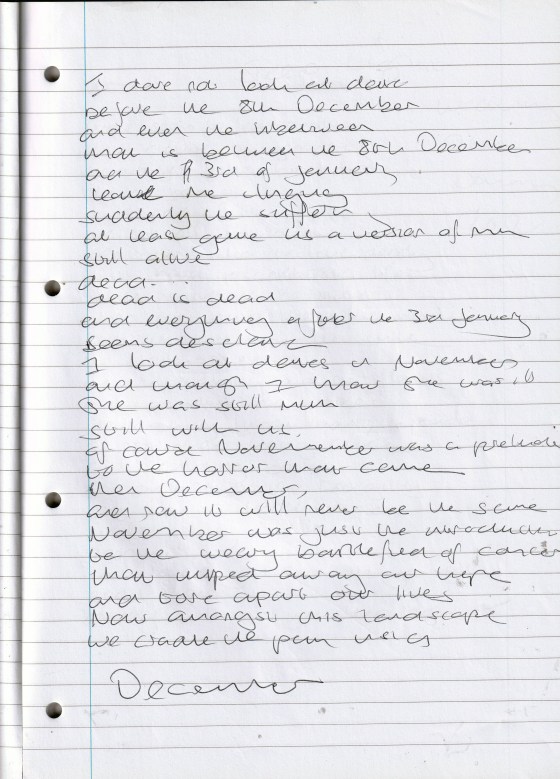 I dare not look at date
before the 8th December
and even the inbetween
that is between the 8th December
and the 3rd of January.
leave me clinging
suddenly the suffering
at least gave us a version of mum
still alive
dead...
dead is dead
and everything after the 3rd January
seems desolate
I look at dates in November
and though I know she was ill
she was still mum
still with us.
of course November was a prelude
to the horror that came
then December,
and now it will never be the same
November was just the introduction
to the weary battlefield of cancer
that wiped away our hope
and tore apart our lives
Now amongst this landscape
we cradle the pain
December